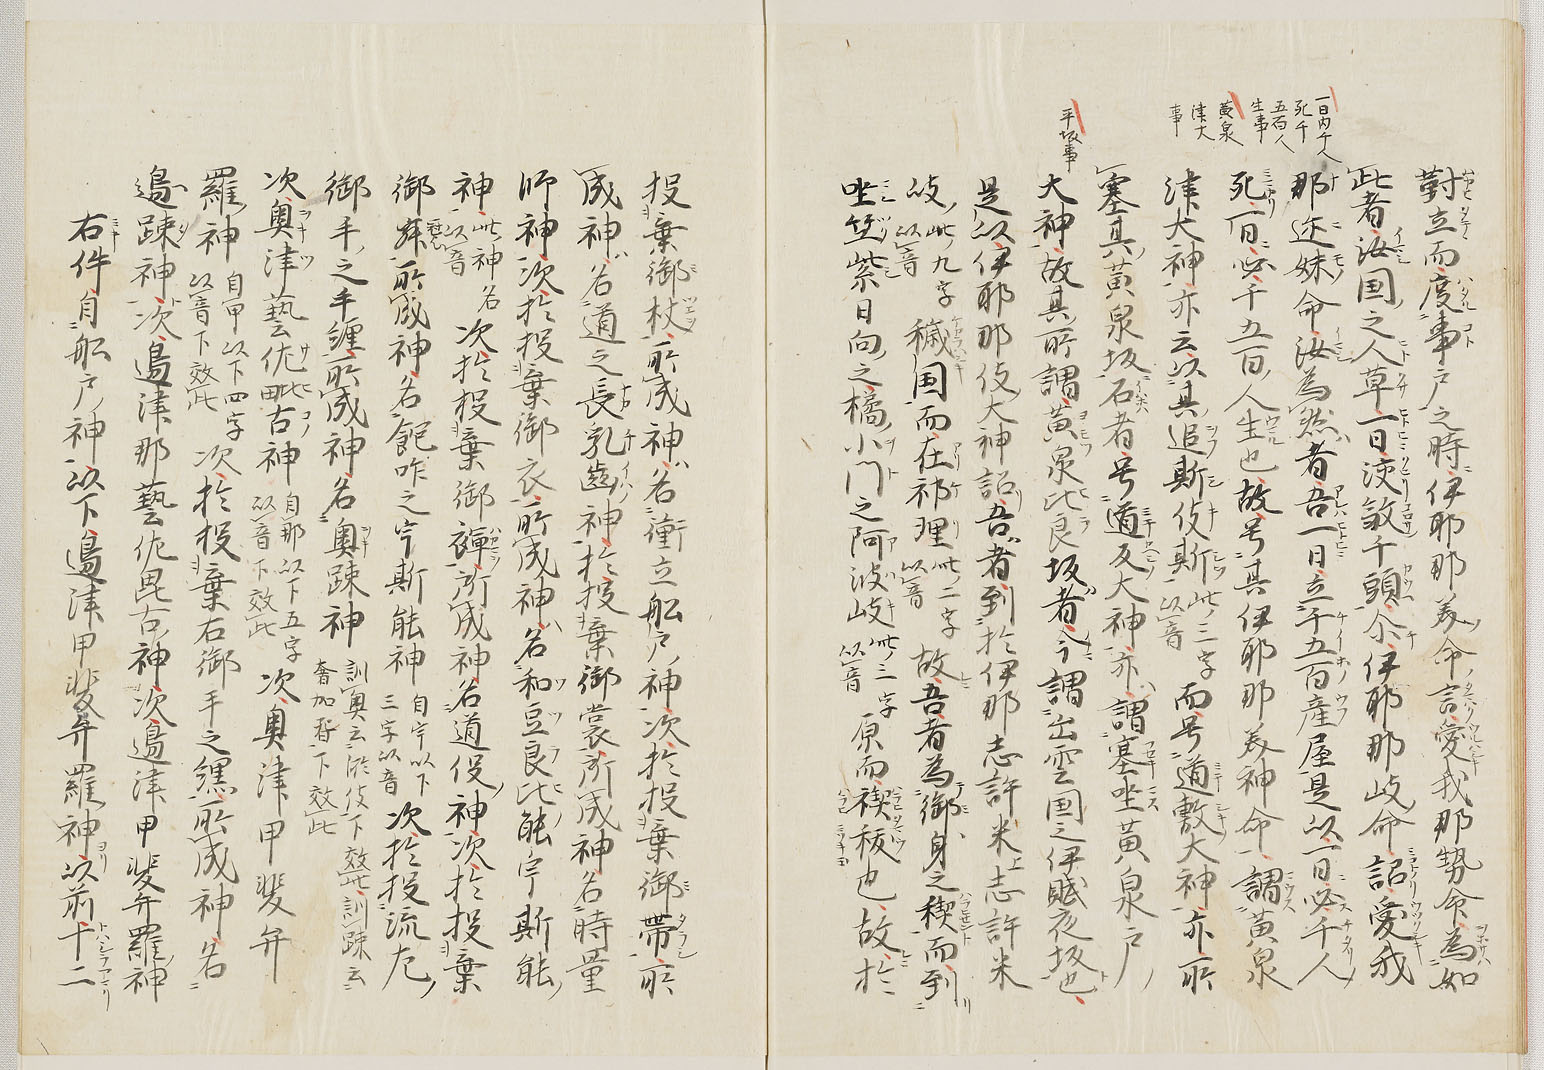 一日内千人
死千
五百人
生事
黄泉
津大
事
平坂事
對立而度事戸之時伊耶那美命言愛我那勢命為如
此者汝国之人草一日浸敛千頭尒伊耶那岐命詔愛我
那迩妹命汝為然者吾一日立千五百産屋是以一日必千人
死一百必千五百人生也故号其伊耶那美神命謂黄泉
津大神亦云以其追斯伎斯此三字以音而号道敷大神亦所
塞其黄泉坂石者号道反大神亦謂塞坐黄泉戸
大神故其所謂黄泉比良坂者今謂出雲国之伊賦夜坂也
是以伊耶那伎大神詔吾者到於伊那志許米上志許米
岐此九字以音穢国而在祁理此二字以音故吾者為御身之禊而到
坐竺紫日向之橘小門之阿波岐此三字以音原而禊祓也故於
投棄御杖所成神名衝立舩戸神次於投棄御帯所
成神名道之長乳齒神於投棄御裳所成神名時量
師神次於投棄御衣所成神名和豆良比能宇斯能
神此神名以音次於投棄御褌所成神名道俣神次於投棄
御冠所成神名飽咋之宇斯能神自宇以下三字以音次於投流左
御手之手纏所成神名奥疎神訓奥云於伎下效此訓疎云奢加留下效此
次奥津藝佐毗古神自那以下五字以音下效此次奥津甲斐弁
羅神自甲以下四字以音下效此次於投棄右御手之纏所成神名
邉疎神次邉津那藝佐毘古神次邉津甲斐弁羅神
右件自舩戸神以下邉津甲斐弁羅神以前十二